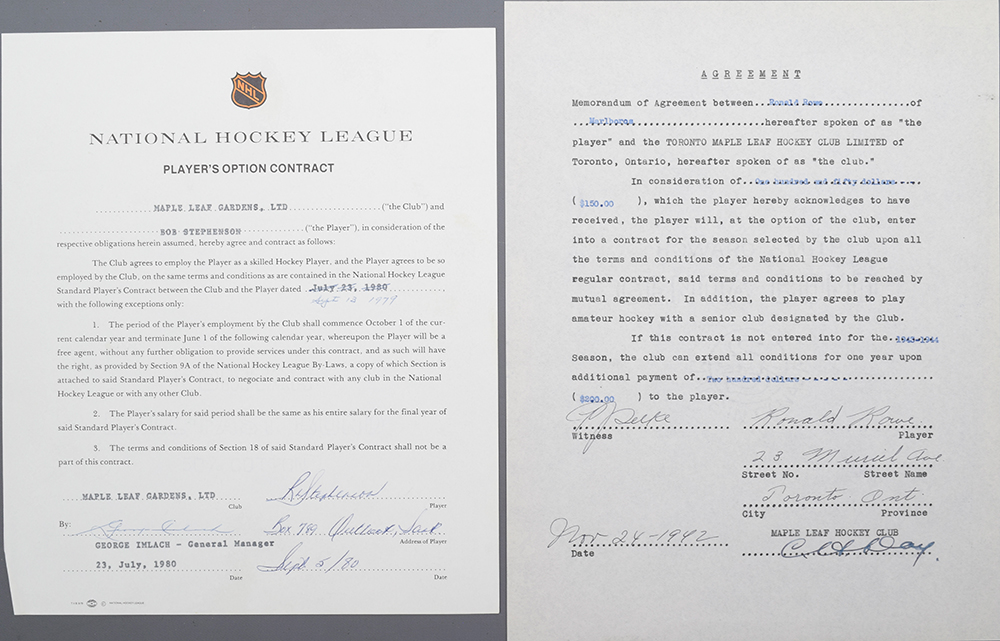 NHL
NATIONAL HOCKEY LEAGUE
PLAYER'S OPTION CONTRACT
MAPLE LEAF GARDENS, LTD ("the Club") and
BOB STEPHENSON ("the Player"), in consideration of the
respective obligations herein assumed, hereby agree and contract as follows:
The Club agrees to employ the Player as a skilled Hockey Player, and the Player agrees to be so
employed by the Club, on the same terms and conditions as are contained in the National Hockey League
Standard Player's Contract between the Club and the Player dated July 23, 1980
Sept 12 1979
with the following exceptions only:
1. The period of the Player's employment by the Club shall commence October 1 of the cur-
rent calendar year and terminate June 1 of the following calendar year, whereupon the Player will be a
free agent, without any further obligation to provide services under this contract, and as such will have
the right, as provided by Section 9A of the National Hockey League By-Laws, a copy of which Section is
attached to said Standard Player's Contract, to negotiate and contract with any club in the National
Hockey League or with any other Club.
2. The Player's salary for said period shall be the same as his entire salary for the final year of
said Standard Player's Contract.
3. The terms and conditions of Section 18 of said Standard Player's Contract shall not be a
part of this contract.
MAPLE LEAF GARDENS, LTD R Stephenson
Club Player
By: Box 789 Outlook, Sask
GEORGE IMLACH - General Manager Address of Player
23, July, 1980 Sept 5/80
Date Date
AGREEMENT
Memorandum of Agreement between...Ronald Rowe...............of
...Marlboros.....................hereafter spoken of as "the
player" and the TORONTO MAPLE LEAF HOCKEY CLUB LIMITED of
Toronto, Ontario, hereafter spoken of as "the club."
In consideration of..One hundred and fifty dollars....
( $150.00 ), which the player hereby acknowledges to have
received, the player will, at the option of the club, enter
into a contract for the season selected by the club upon all
the terms and conditions of the National Hockey League
regular contract, said terms and conditions to be reached by
mutual agreement. In addition, the player agrees to play
amateur hockey with a senior club designated by the Club.
If this contract is not entered into for the.1943-1944
Season, the club can extend all conditions for one year upon
additional payment of..Two hundred dollars
( $200.00 ) to the player.
Ronald Rowe
Witness Player
23 Muriel Ave
Street No. Street Name
Toronto Ont
City Province
Nov 24-1942 MAPLE LEAF HOCKEY CLUB
Date